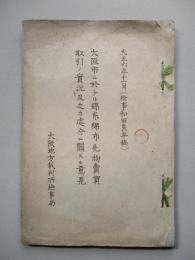 大正六年十一月(検事和田良平稿)
大阪市ニ於ケル綿糸綿布先物賣買
取引ノ實況及之カ処分ニ關スル意見
大阪地方裁判所検事局